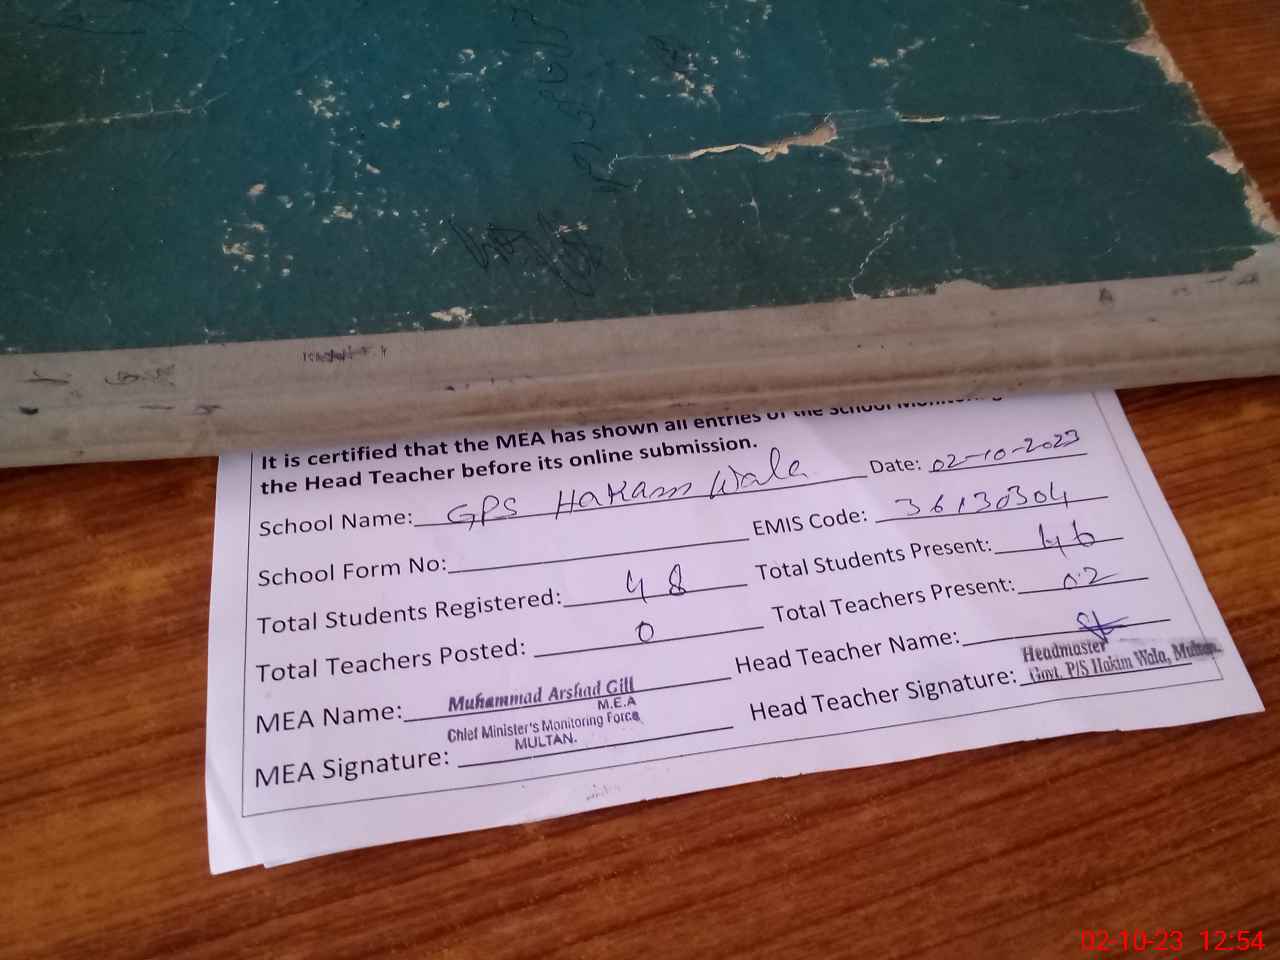 It is certified that the MEA has shown all entries of the School Monitoring
the Head Teacher before its online submission.
School Name: GPS Hakam Wala Date: 02-10-2023
School Form No: EMIS Code: 36130304
Total Students Registered: 48 Total Students Present: 46
Total Teachers Posted: 0 Total Teachers Present: 02
MEA Name: Muhammad Arshad Gill Head Teacher Name:
M.E.A
Chief Minister's Monitoring Force
MULTAN.
MEA Signature: Head Teacher Signature:
Headmaster
Govt. P/S Hakim Wala, Multan.
02-10-23 12:54